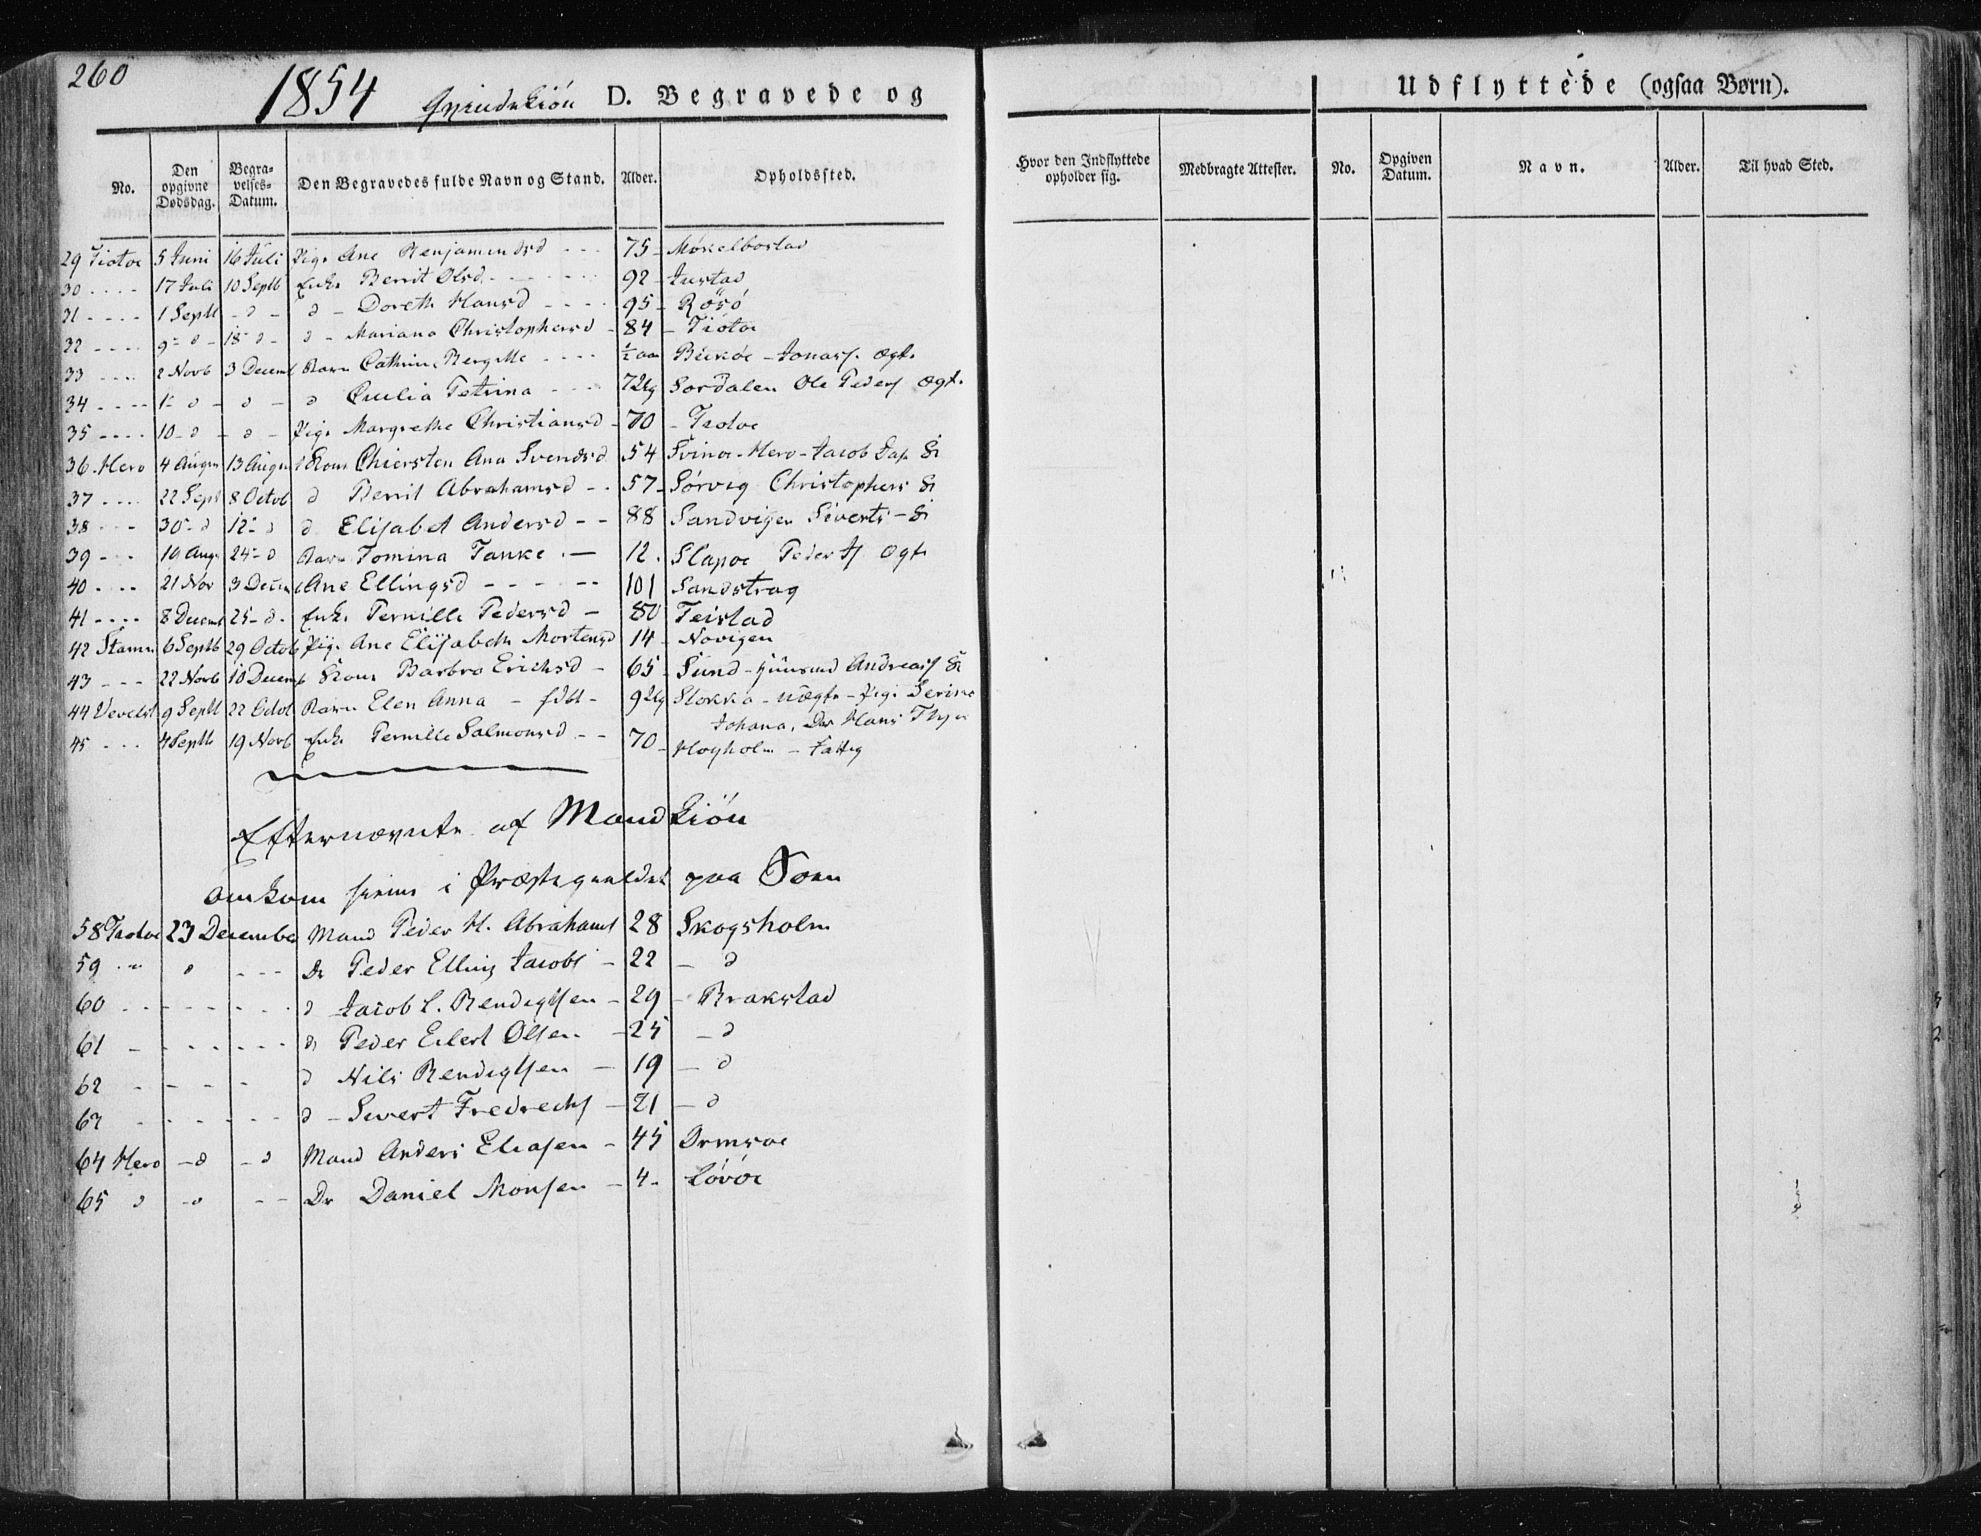 260
1854 Qvindekiön D. Begravede og
Udflyttede (ogsaa Børn).
No. Den opgivne Dødsdag. Begravelses-Datum. Den Begravedes fulde Navn og Stand. Alder. Opholdssted.
Hvor den Indflyttede opholder sig. Medbragte Attester. No. Opgiven Datum. Navn. Alder. Til hvad Sted.
29 Tiotoe 5 Juni 16 Juli Pige Ane Benjaminsd - - - 75 - Moxelbostad
30 - - - - 17 Juli 10 Septb Enke Berrit Olsd - - - - 92 - Justad
31 - - - - 1 Septb - d - d - Doreth Hansd - - - - 95 - Rösö
32 - - - - 9 - d - 18 - d - d - Mariana Christophersd - 84 - Tiotoe
33 - - - - 2 Novb 3 Decemb Barn Cathrine Bergitte - - - - ½ aar - Jonass. Ægt.
34 - - - - 1 - d - - d - d Petrina - - - 72 Sordalen Ole Peders Ægt.
35 - - - - 10 - d - d - Pige Margrethe Christiansd - 70 - Tiotoe
36 Hero 4 August 13 August Kone Chiersten Ana Svendsd 54 Svinoe - Hero - Jacob
37 - - - - 22 Sept 8 Octob d Berrit Abrahamsd - - 57 - Sorvig Christophers
38 - - - 30 - d 12 - d d Elisabet Andersd - - 88 Sandvigen Siverts -
39 - - - 19 Aug. 24 - d Barn Tomina Tanke - 12. Slapoe Peder Ægt.
40 - - - - 21 Nov 3 Decem Ane Ellingsd - - - - - 101 Sandstrag
41 - - - - 8 Decemb 25 - d. Enke Pernille Pedersd - 80 Feistad
42 Stamn 6 Septb 29 Octob Pige Ane Elisabeth Mortensd 14 - Novigen
43 - - - 22 Novb 10 Decemb Kone Barbro Erichsd - 65 - Sund - Andreas
44 Vevelst 9 Septb 22 Octob Barn Elen Anna - fdbt - 9 Stokka - uægte - Pige Serine
Johana, Dr Hans
45 - - - 4 Septb 19 Novb Enke Pernille Salmonsd - - 70 - Hoyholm - Fattig
Efternævnte af Mandkiön
omkom i Præstegieldet paa Söen
58 Tiotoe 23 December Mand Peder H. Abrahams 28 Skogsholm
59 - - d - - - Dr Peder Elling Jacobs - 22 - d
60 - - - - - - - d Jacob L. Bendigtsen - 29 - Brakstad
61 - - - - - - - d Peder Eilert Olsen - 25 - d
62 - - - - d Nils Bendigtsen - 19 - d
63 - - - - - - - d - Sivert Fredrechs - 21 - d
64 Hero - d - d Mand Anders Eliasen - 45 Ormsoe
65 d - d - - Dr Daniel Monsen - 4 - Lovoe